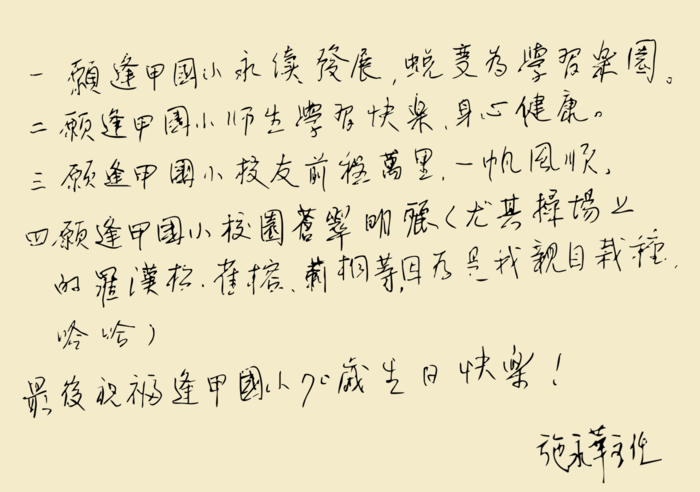 一願逢甲國小永續發展,蛻變為學習樂園。
二願逢甲國小师生學習快樂,身心健康。
三願逢甲國小校友前程萬里,一帆風順,
四願逢甲國小校園蒼翠明麗(尤其操場上
的羅漢松、雀榕、莿桐等,因為是我親自栽種,
哈哈)
最後祝福逢甲國小70歲生日快樂!
施永華主任